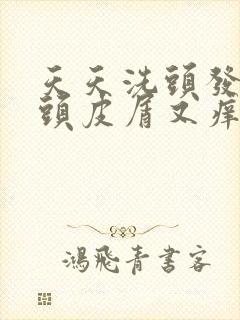 天天洗頭發
頭皮屑又痒
鴻飛青書客